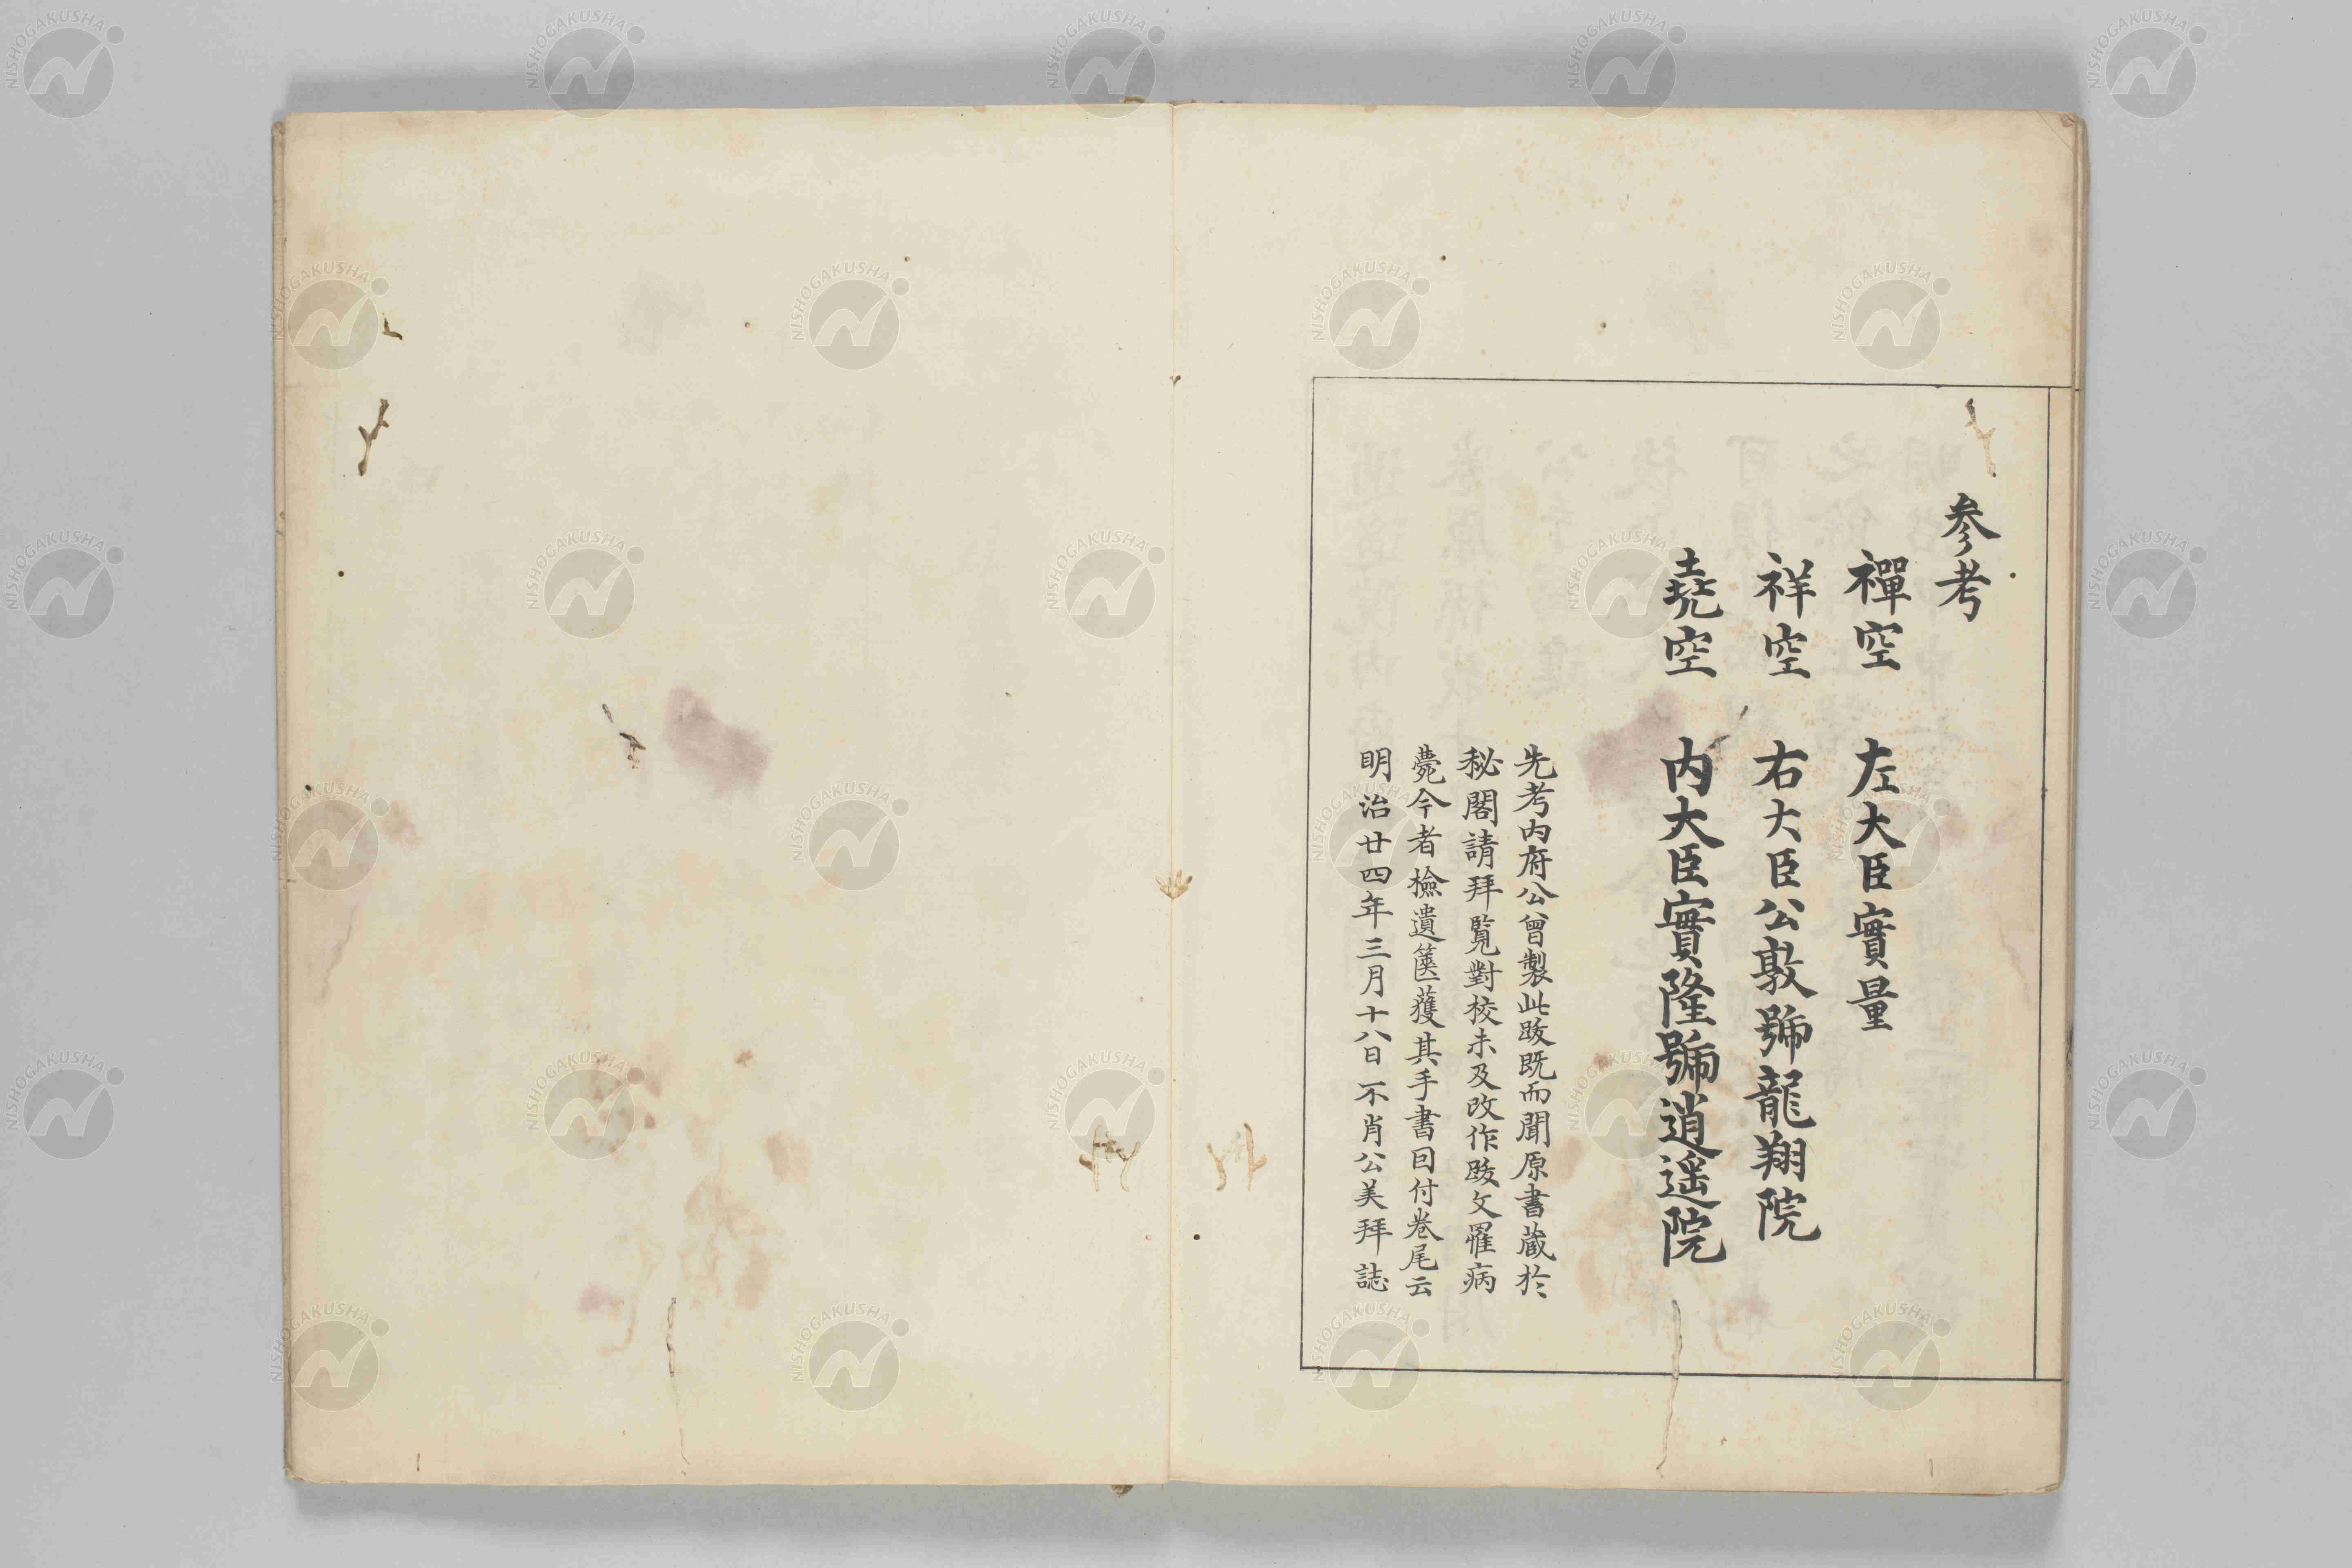 参考
禪空 左大臣實量
祥空 右大臣公敦號龍翔院
堯空 内大臣實隆號逍遥院
先考内府公曾製此跋既而聞原書蔵於
秘閣請拜覧對校未及改作跋文罹病
薨今者檢遺篋獲其手書因付卷尾云
明治廿四年三月十八日不肖公美拜誌